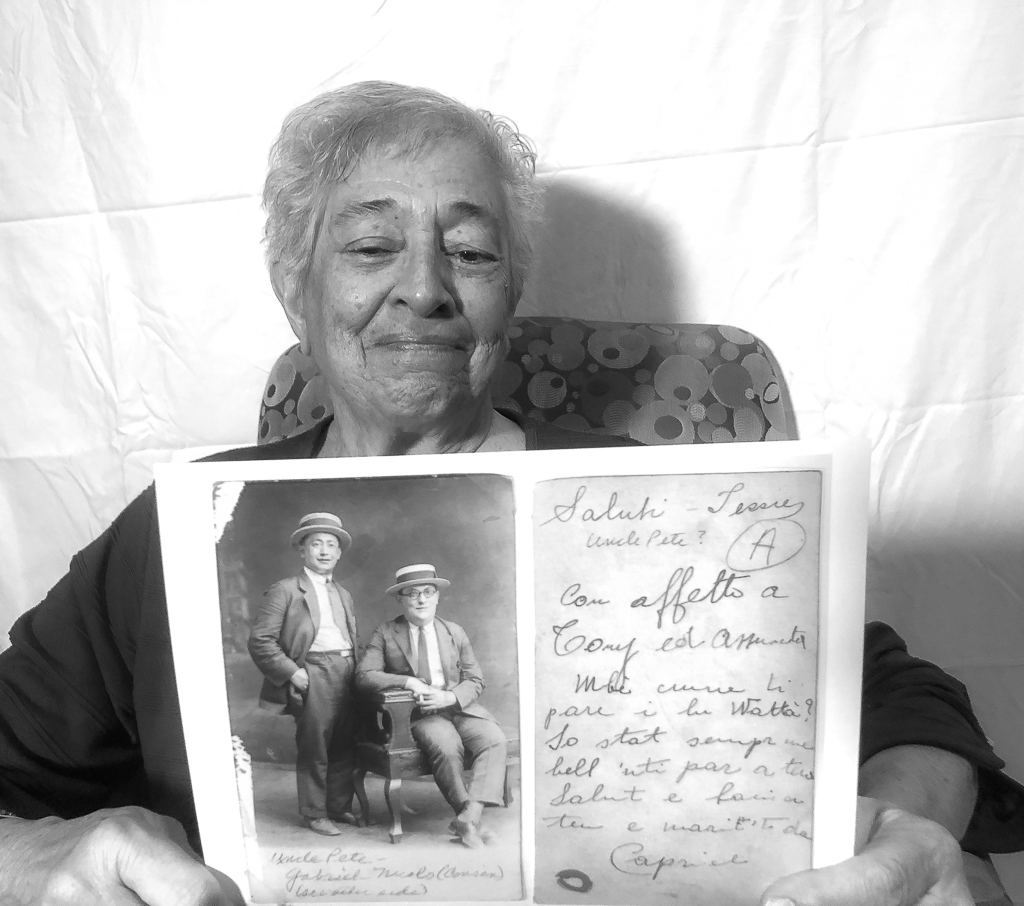 Uncle Pete -
Gabriel Nicolo (Cousin)
(see other side)
Saluti - Jessie
Uncle Pete?
A
Con affetto a
Tony ed Assunta
Mbè cume ti
pare i lu Wattà?
So stat sempr
bell 'nti par a
Salut e
tu e marit't da
Capriel